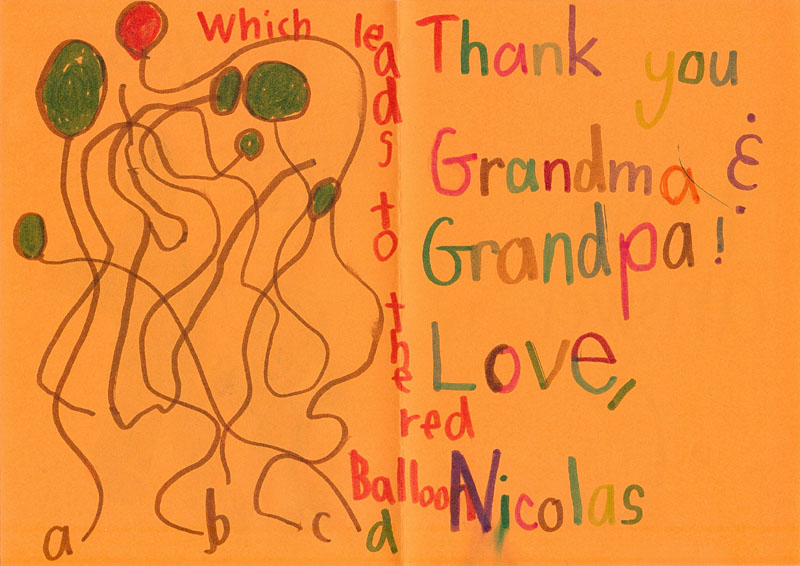 Which leads to the red Balloon
a b c d
Thank you
Grandma &
Grandpa!
Love,
Nicolas